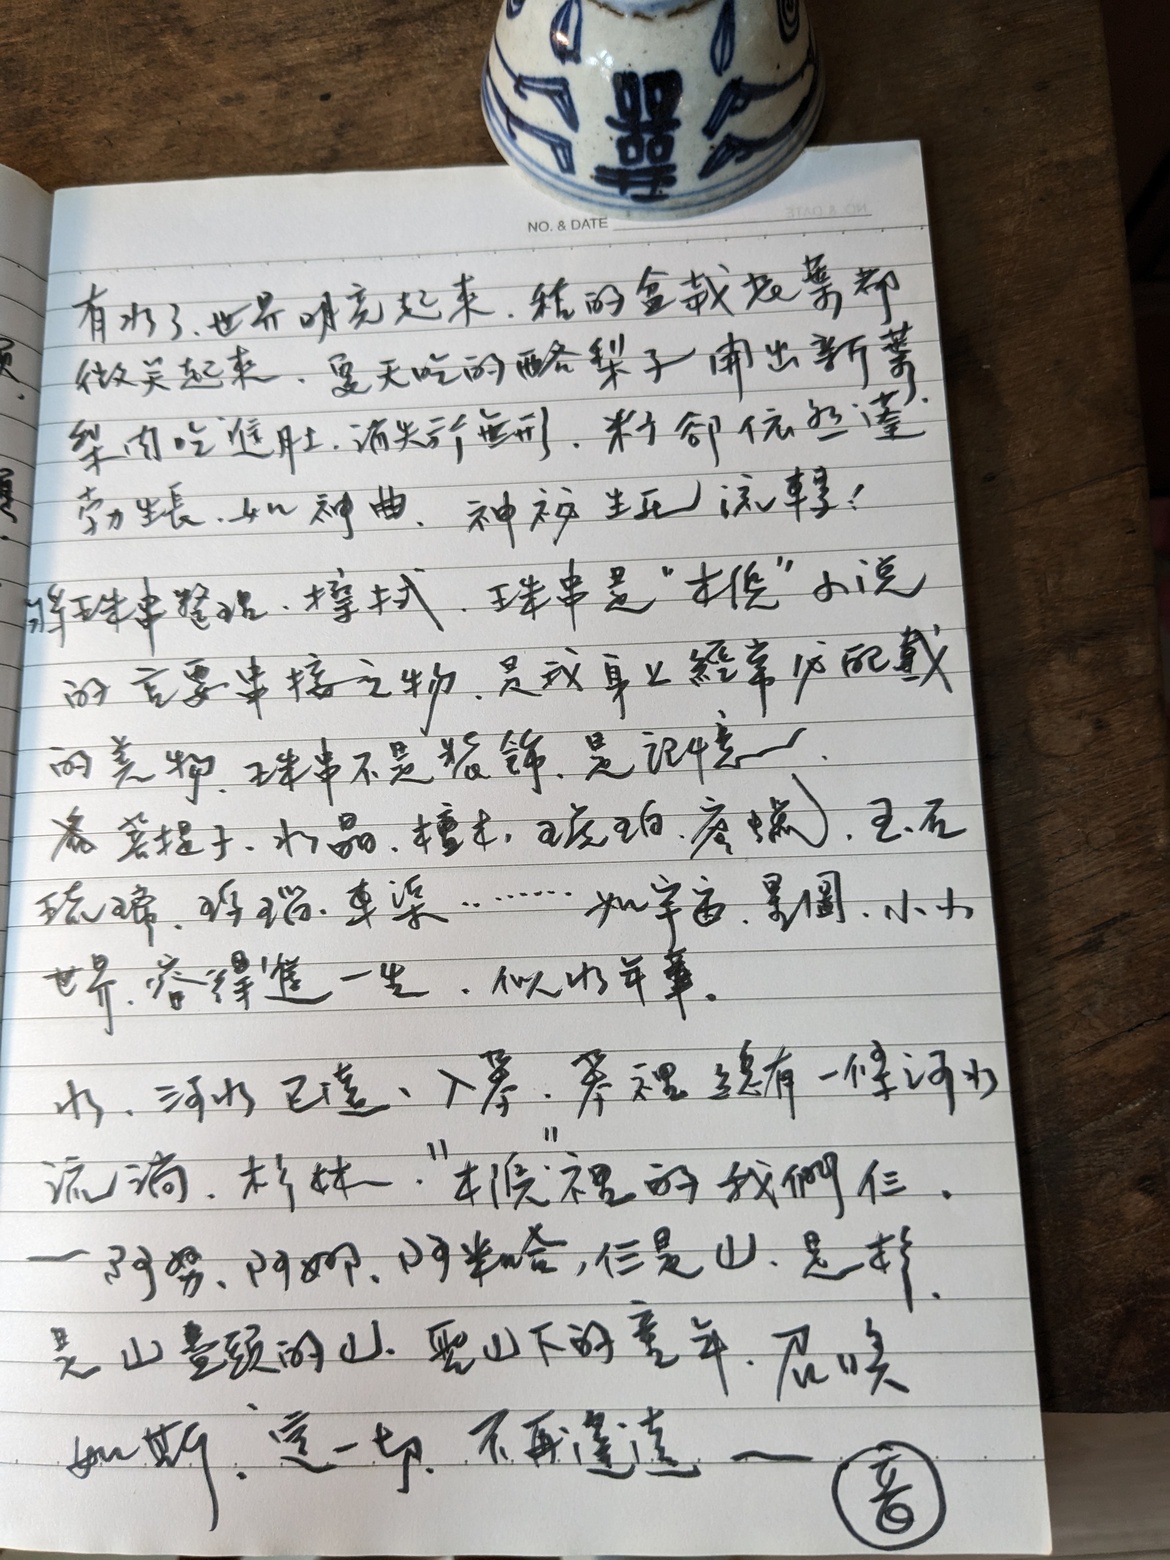 囍
NO. & DATE
有水了、世界明亮起來．我的盆栽老葉都
微笑起來．夏天吃的酪梨子開出新葉
梨肉吃進肚．消失於無形．籽卻依然蓬
勃生長．如神曲．神秘生死流轉！
將珠串整理．擦拭．珠串是"木猴"小說
的言要串接之物．是我身上經常佩戴
的美物．珠串不是裝飾．是記憶．
菩提子．水晶．檀木．琥珀．蜜蠟．玉石
琉璃．瑪瑙．車渠………如宇宙．星圖．小小
世界．容得進一生．似水年華．
水．河水已遠、入夢．夢裡總有一條河水
流淌．杉林．" "裡的我們仨．
一阿努、阿娜、阿米哈，仨是山．是杉．
是山臺頭的山．聖山下的童年．召喚
如斯．這一切．不再遙遠 ——
音